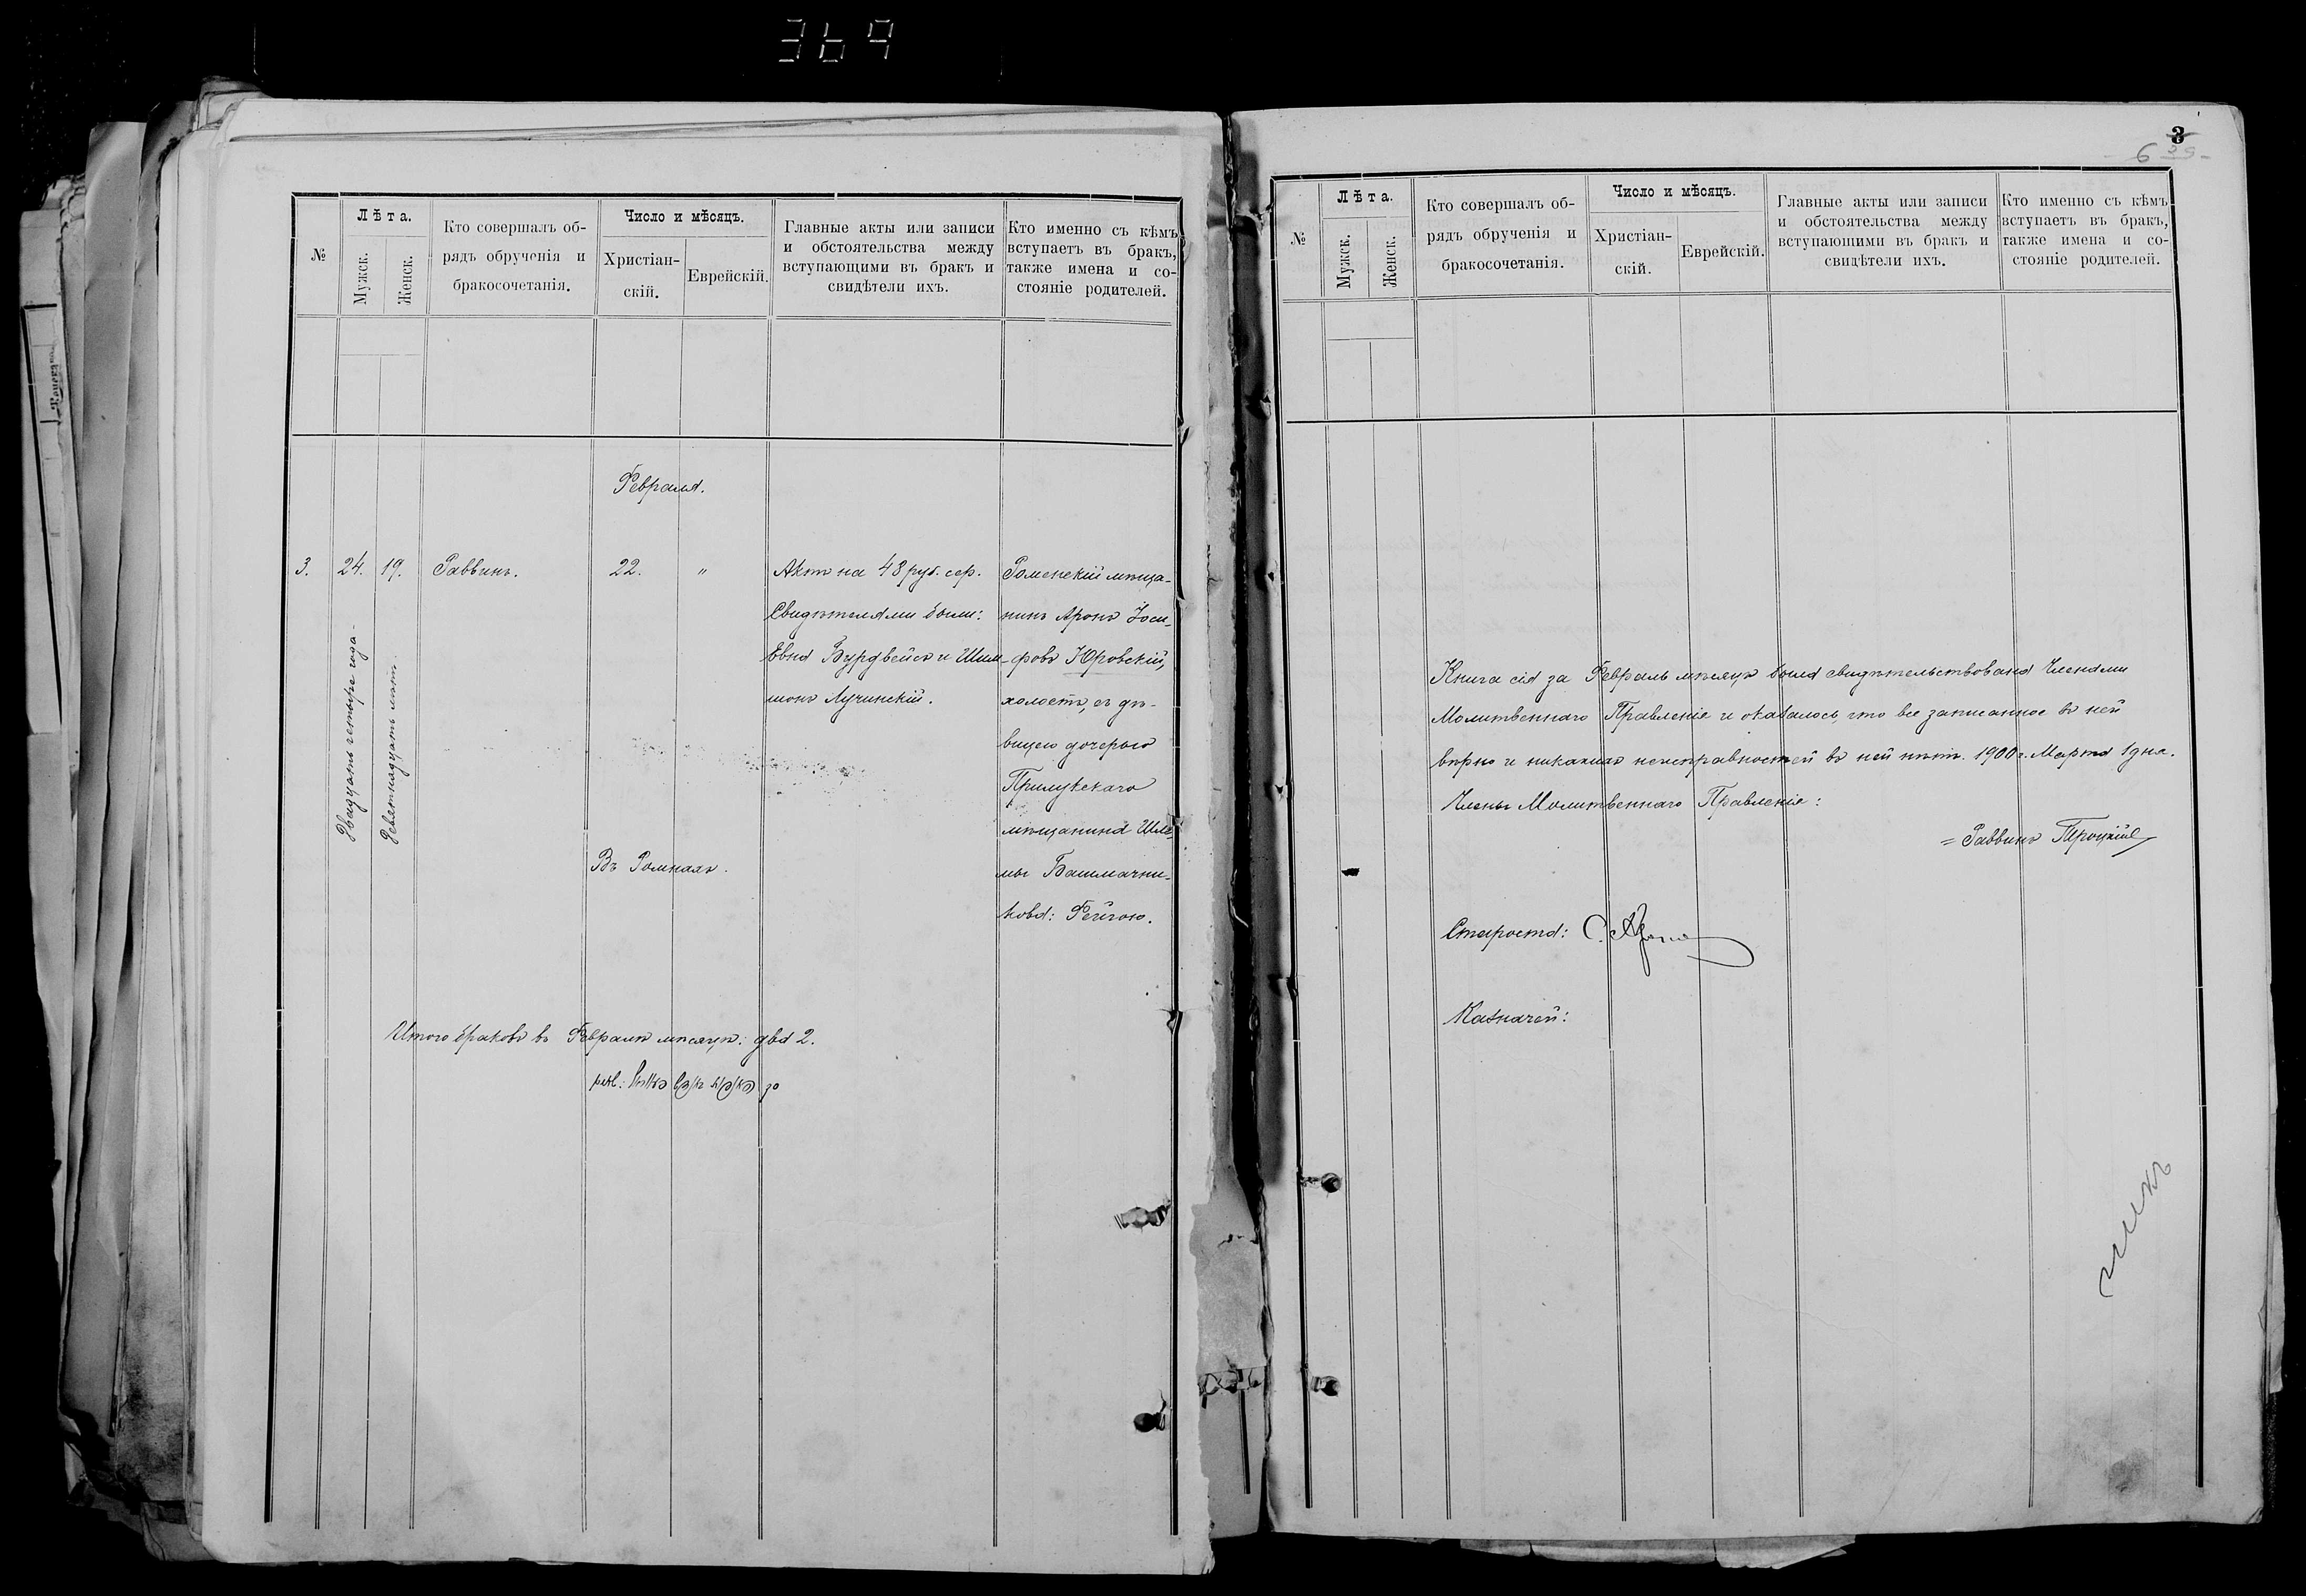 369
№
Лѣта.
Мужск.
Женск.
Кто совершалъ об-
рядъ обрученія и
бракосочетанія.
Число и мѣсяцъ.
Христіан-
скій.
Еврейскій.
Главные акты или записи
и обстоятельства между
вступающими въ бракъ и
свидѣтели ихъ.
Кто именно съ кѣмъ
вступаетъ въ бракъ,
также имена и со-
стояніе родителей.
Февраля.
3.
24.
Двадцать четыре года
19.
Девятнадцать лѣтъ
Раввинъ.
22.
"
Въ Ромнахъ.
Актъ на 48 руб. сер.
Свидѣтелями были:
Шим-
монъ Лучинскій.
Роменскій мѣща-
нинъ Аронъ Іоси-
фовъ Юровскій,
холостъ, съ дѣ-
вицею дочерью
Прилукскаго
мѣщанина Шле-
мы Башмачни-
кова: Фейгою.
Итого браковъ въ Февралѣ мѣсяцѣ: два 2.
3
6
№
Лѣта.
Мужск.
Женск.
Кто совершалъ об-
рядъ обрученія и
бракосочетанія.
Число и мѣсяцъ.
Христіан-
скій.
Еврейскій.
Главные акты или записи
и обстоятельства между
вступающими въ бракъ и
свидѣтели ихъ.
Кто именно съ кѣмъ
вступаетъ въ бракъ,
также имена и со-
стояніе родителей.
Книга сія за Февраль мѣсяцъ была свидѣтельствована Членами
Молитвеннаго Правленія и оказалось, что все записанное въ ней
вѣрно и никакихъ неисправностей въ ней нѣтъ. 1900 г. Марта 1 дня.
Члены Молитвеннаго Правленія:
= Раввинъ Троцкій
Староста: С.
Казначей: